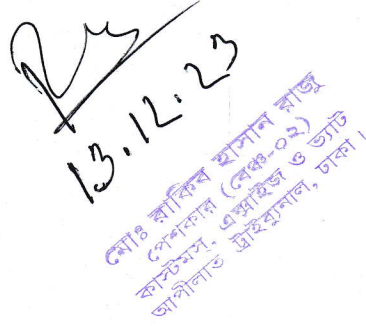 13.12.23
মোঃ রাকিব হাসান রাজু
পেশকার (বেঞ্চ-০২)
কাস্টমস, এক্সাইজ ও ভ্যাট
আপীলাত ট্রাইব্যুনাল, ঢাকা।